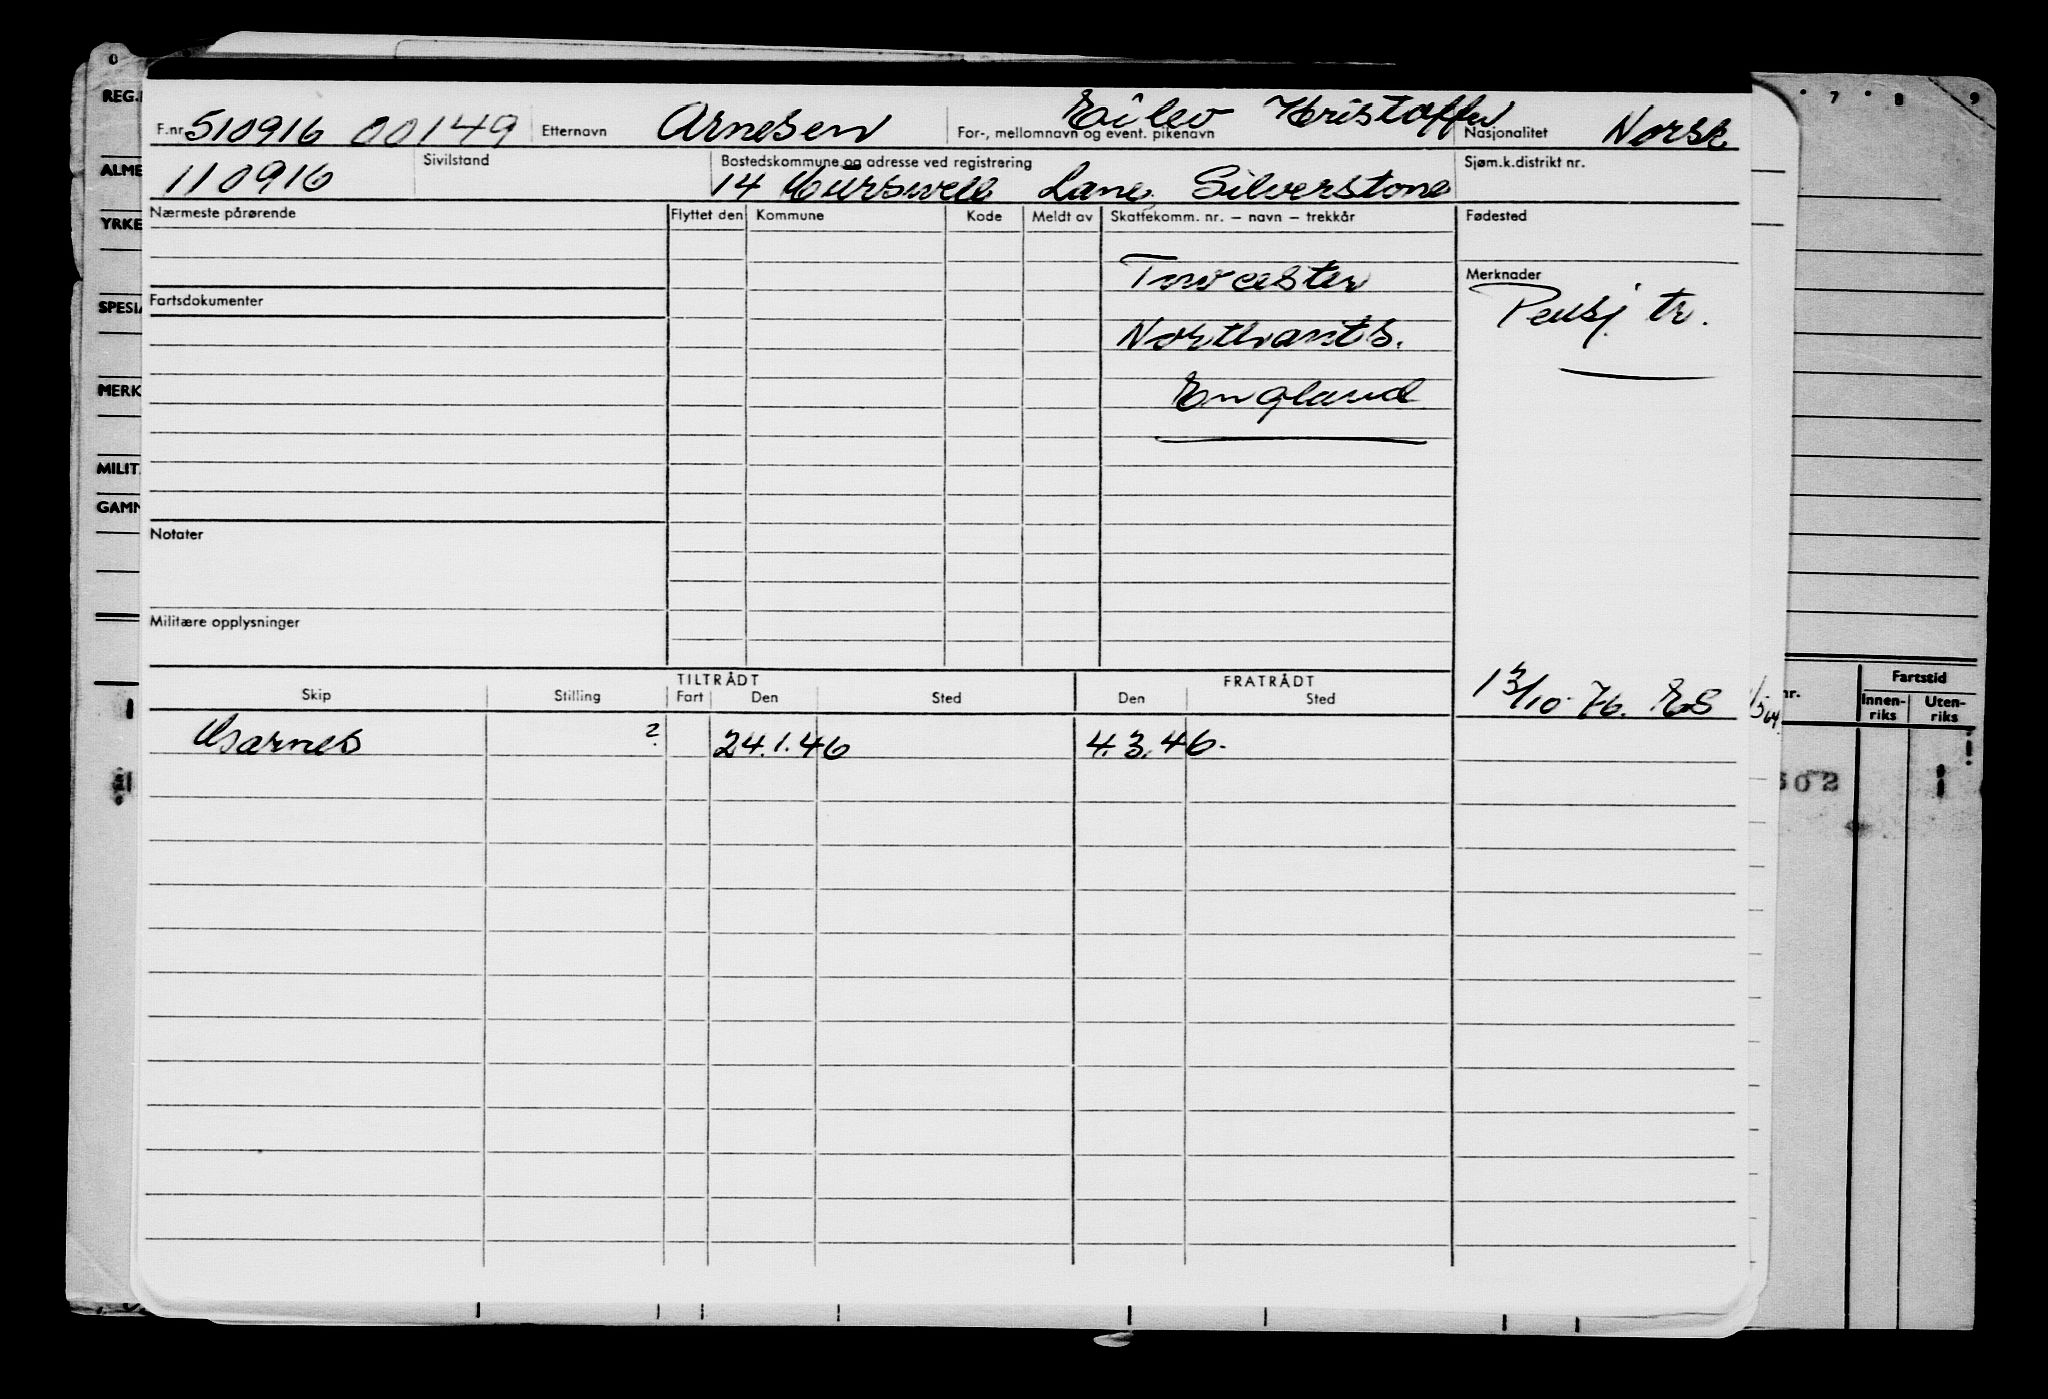 F.nr. 510916 00149 Etternavn Arnesen For-, mellomnavn og event. pikenavn Eilev Kristoffer Nasjonalitet Norsk
110916 Sivilstand Bostedskommune og adresse ved registrering 14 Lane Silverstone Sjøm.k.distrikt nr.
Nærmeste pårørende Flyttet den Kommune Kode Meldt av Skattekomm. nr. – navn – trekkår Fødested
Towcester
Merknader
Northants.
Pensj. tr.
England
Fartsdokumenter
Notater
Militære opplysninger
TILTRÅDT FRATRÅDT
Skip Stilling Fart Den Sted Den Sted
13/10-76. ES
Garnes ? 24.1.46 4.3.46.
REG.
ALME
YRKE
SPESIA
MERK
MILIT.
GAMM
0
7 8 9
nr. Fartstid
Innen-riks Uten-riks
502